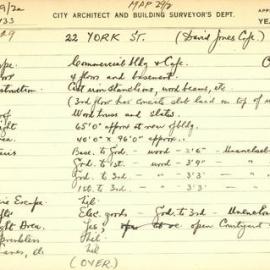 MAP 29/2
9/2a CITY ARCHITECT AND BUILDING SURVEYOR'S DEPT. APP
733 YEA
09 22 YORK ST. (David Jones Cafe.)
ype. Commercial bldg & Cafe. C
oor 4 floors and basement.
struction. Cast iron stanchions, wood beams, etc.
(3rd floor has concrete slab laid on top of w
oof Wood truss and slates
ght 65'0" approx at rear of bldg.
rea. 40'0" x 96'0" approx.
airs Base. to Grd. - wood - 3'6" - Unenclos
Grd. to 1st. - wood - 3'9" -
Grd. to 3rd. - " - 3'3" - "
1st. to 3rd - " - 3'3" - "
ire Escape. Nil.
fts Elec. goods - Grd. to 3rd - Unenclo
ight Area. Yes, open Courtyard
prinklers Nil.
(OVER)